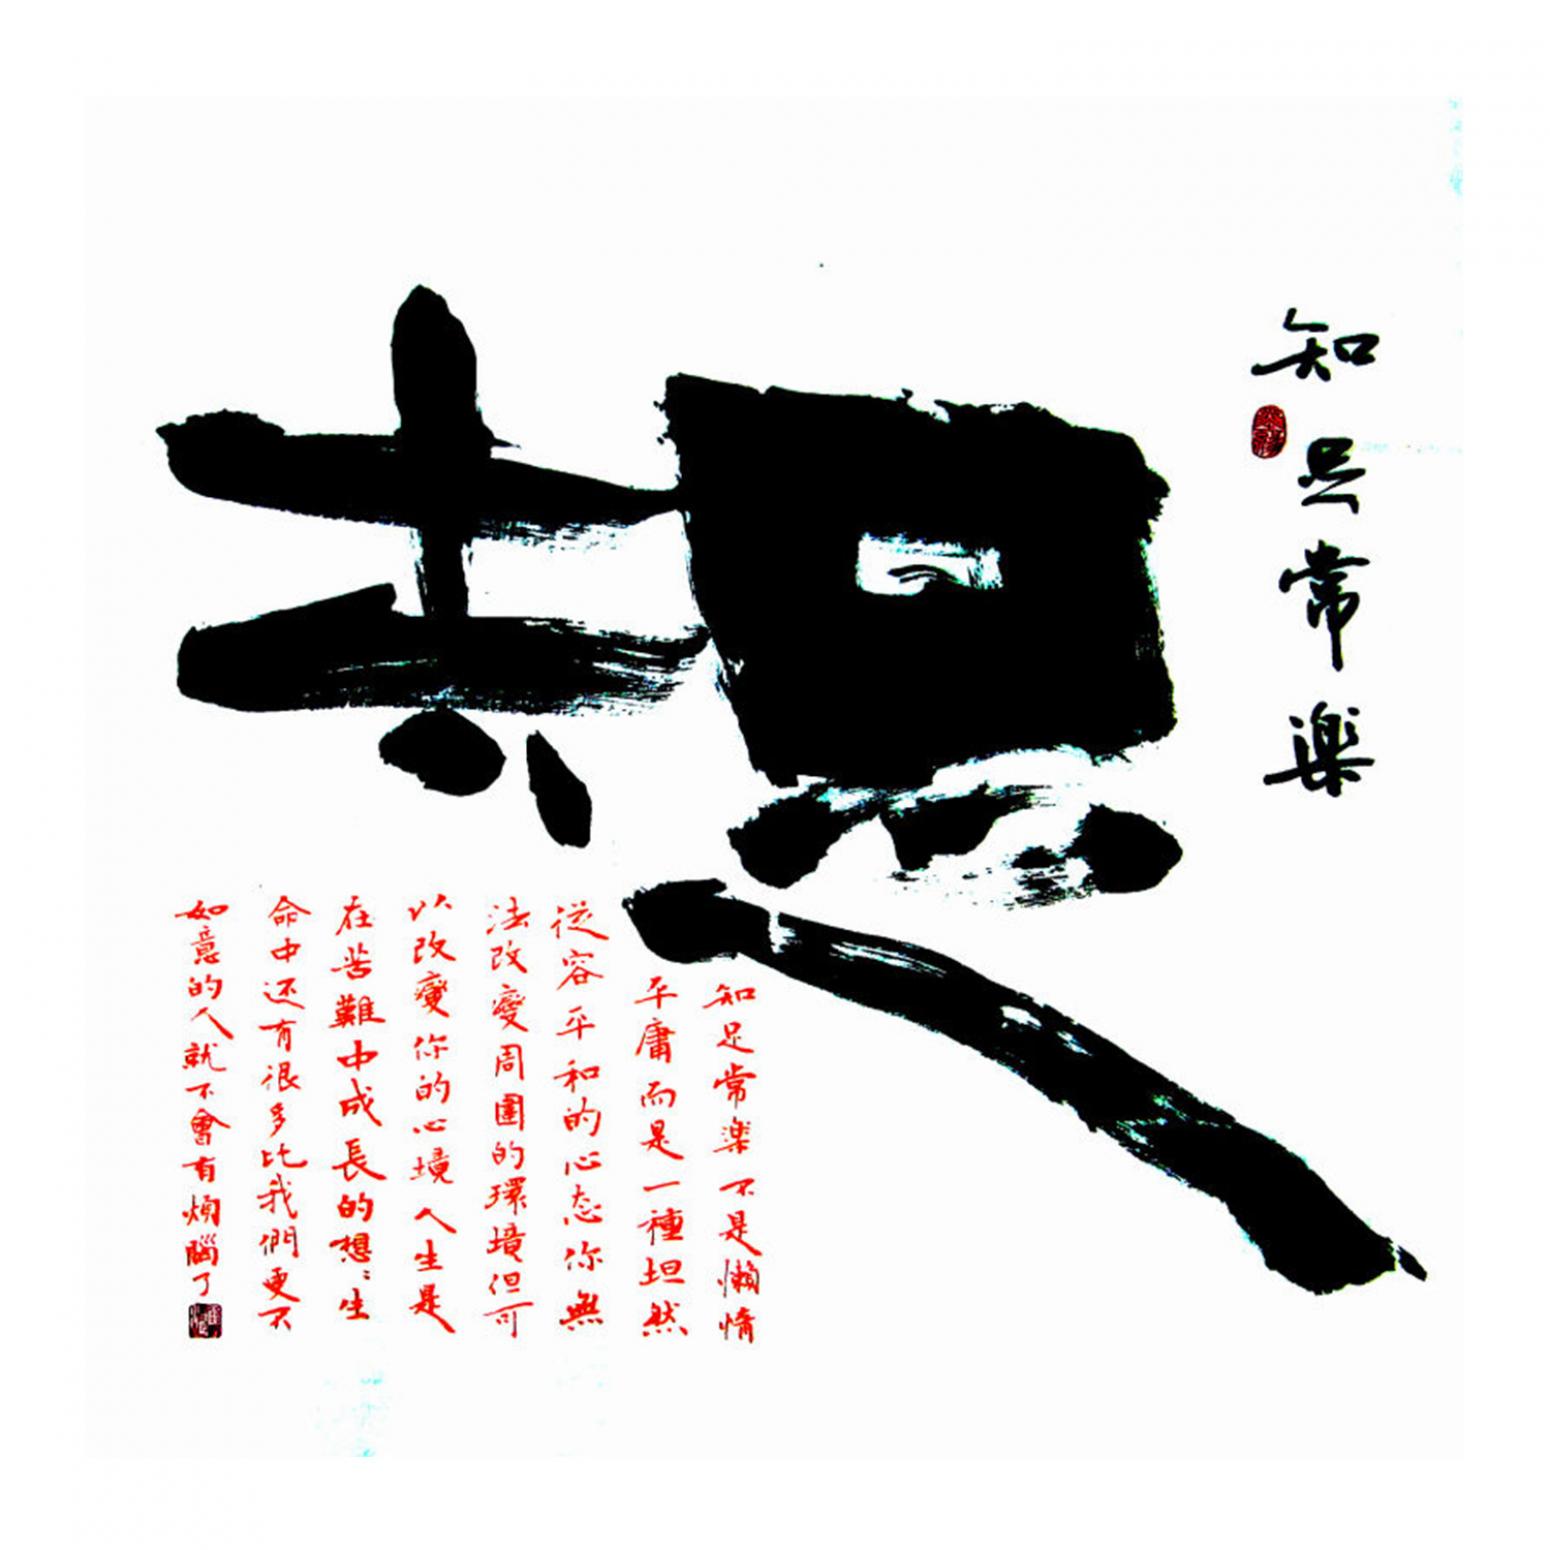 知足常楽
知足常楽不是懶惰
平庸而是一種坦然
從容平和的心态你無
法改變周圍的環境但可
以改變你的心境人生是
在苦難中成長的想〻生
命中还有很多比我們更不
如意的人就不會有煩腦了